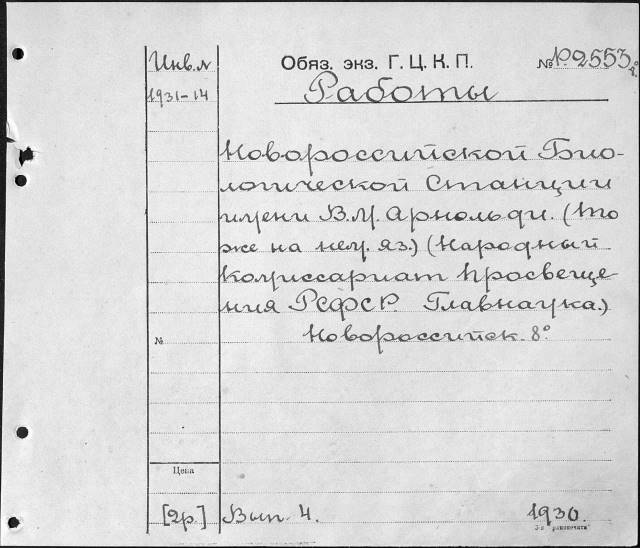 Инв. №
Обяз. экз. Г. Ц. К. П.
№ Р. 2553
1931-14
Работы
Новороссийской Био-
логической Станции
имени В.М. Арнольди. (То
же на нем. яз.) (Народный
Комиссариат Просвеще-
ния РСФСР. Главнаука.)
№
Новороссийск. 8°
Цена
[2р.]
Вып. 4.
1930.